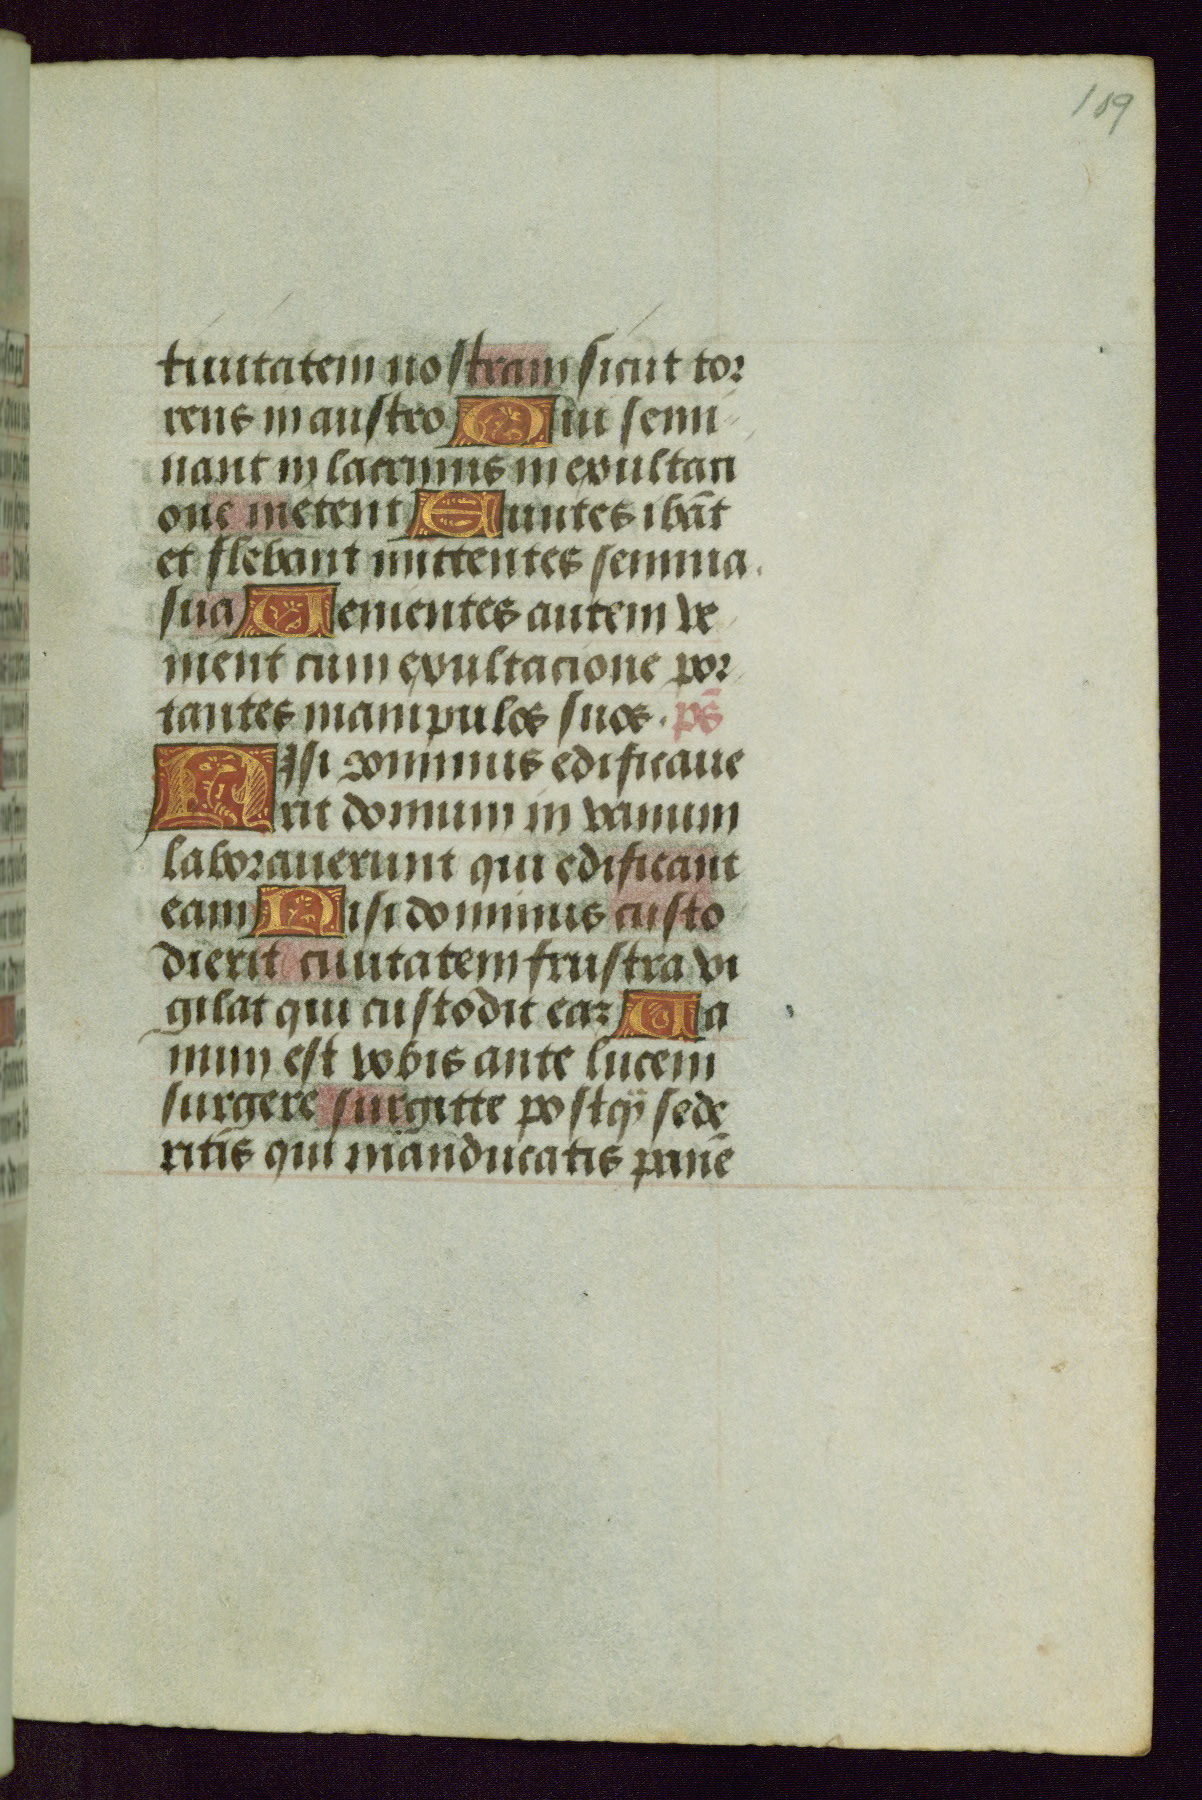 109
tiuitatem nostram sicut tor
rens in austro Qui semi
nant in lacrimis in exultaci
one metent Euntes ibāt
et flebant mittentes semina
sua Uenientes autem ve
nient cum exultacione por
tantes manipulos suos. ps̄
Nisi dominus edificaue
rit domum in vanum
laborauerunt qui edificant
eam Nisi dominus custo
dierit ciuitatem frustra vi
gilat qui custodit eaz Ua
num est vobis ante lucem
surgere surgitte postq̄ sede
ritis qui manducatis panē